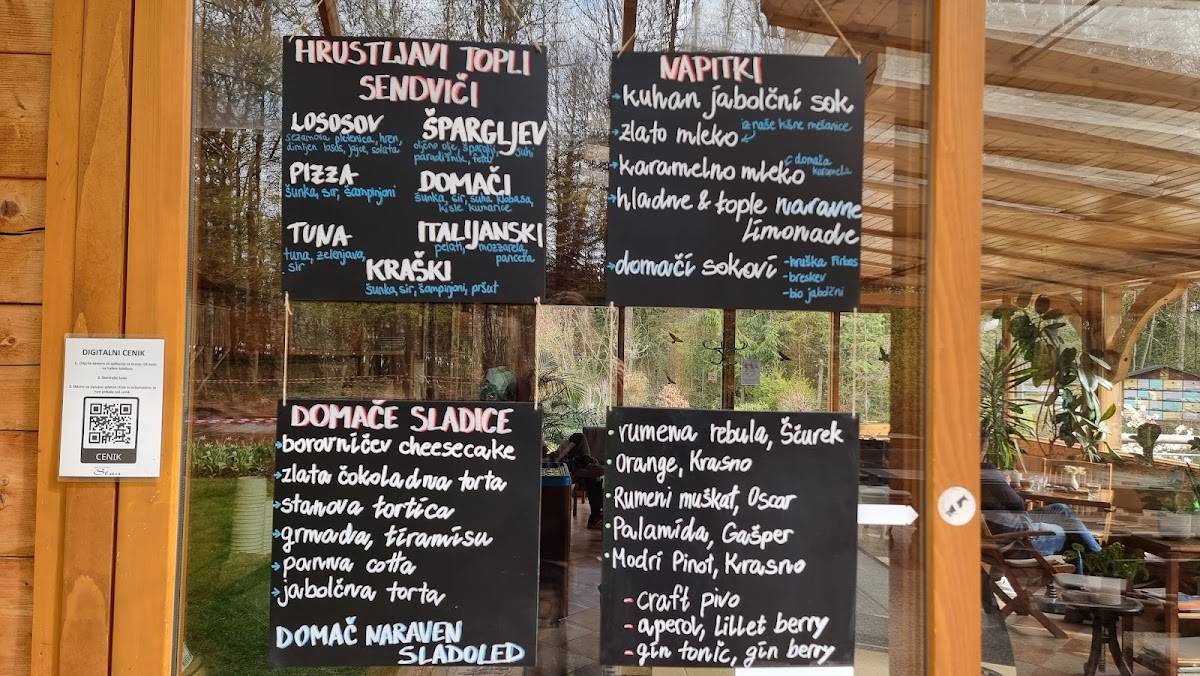 HRUSTLJAVI TOPLI
SENDVIČI
LOSOSOV
sezamova pletenica, hren,
dimljen losos, jajce, solata
ŠPARGLJEV
oljčno olje, šparglji, suhi
paradižnik, feta
PIZZA
šunka, sir, šampinjoni
DOMAČI
šunka, sir, suha klobasa,
kisle kumarice
TUNA
tuna, zelenjava,
sir
ITALIJANSKI
pelati, mozzarela,
panceta
KRAŠKI
šunka, sir, šampinjoni, pršut
NAPITKI
kuhan jabolčni sok
zlato mleko
iz naše hišne mešanice
karamelno mleko
domača
karamela
hladne & tople naravne
limonade
domači sokovi
-hruška
-breskev
-bio jabolčni
DIGITALNI CENIK
CENIK
DOMAČE SLADICE
borovničev cheesecake
zlata čokoladna torta
stanova tortica
grmada, tiramisu
panna cotta
jabolčna torta
DOMAČ NARAVEN
SLADOLED
• rumena rebula, Ščurek
• Orange, Krasno
• Rumeni muškat, Oscar
• Palamida, Gašper
• Modri Pinot, Krasno
- craft pivo
- aperol, Lillet berry
- gin tonic, gin berry